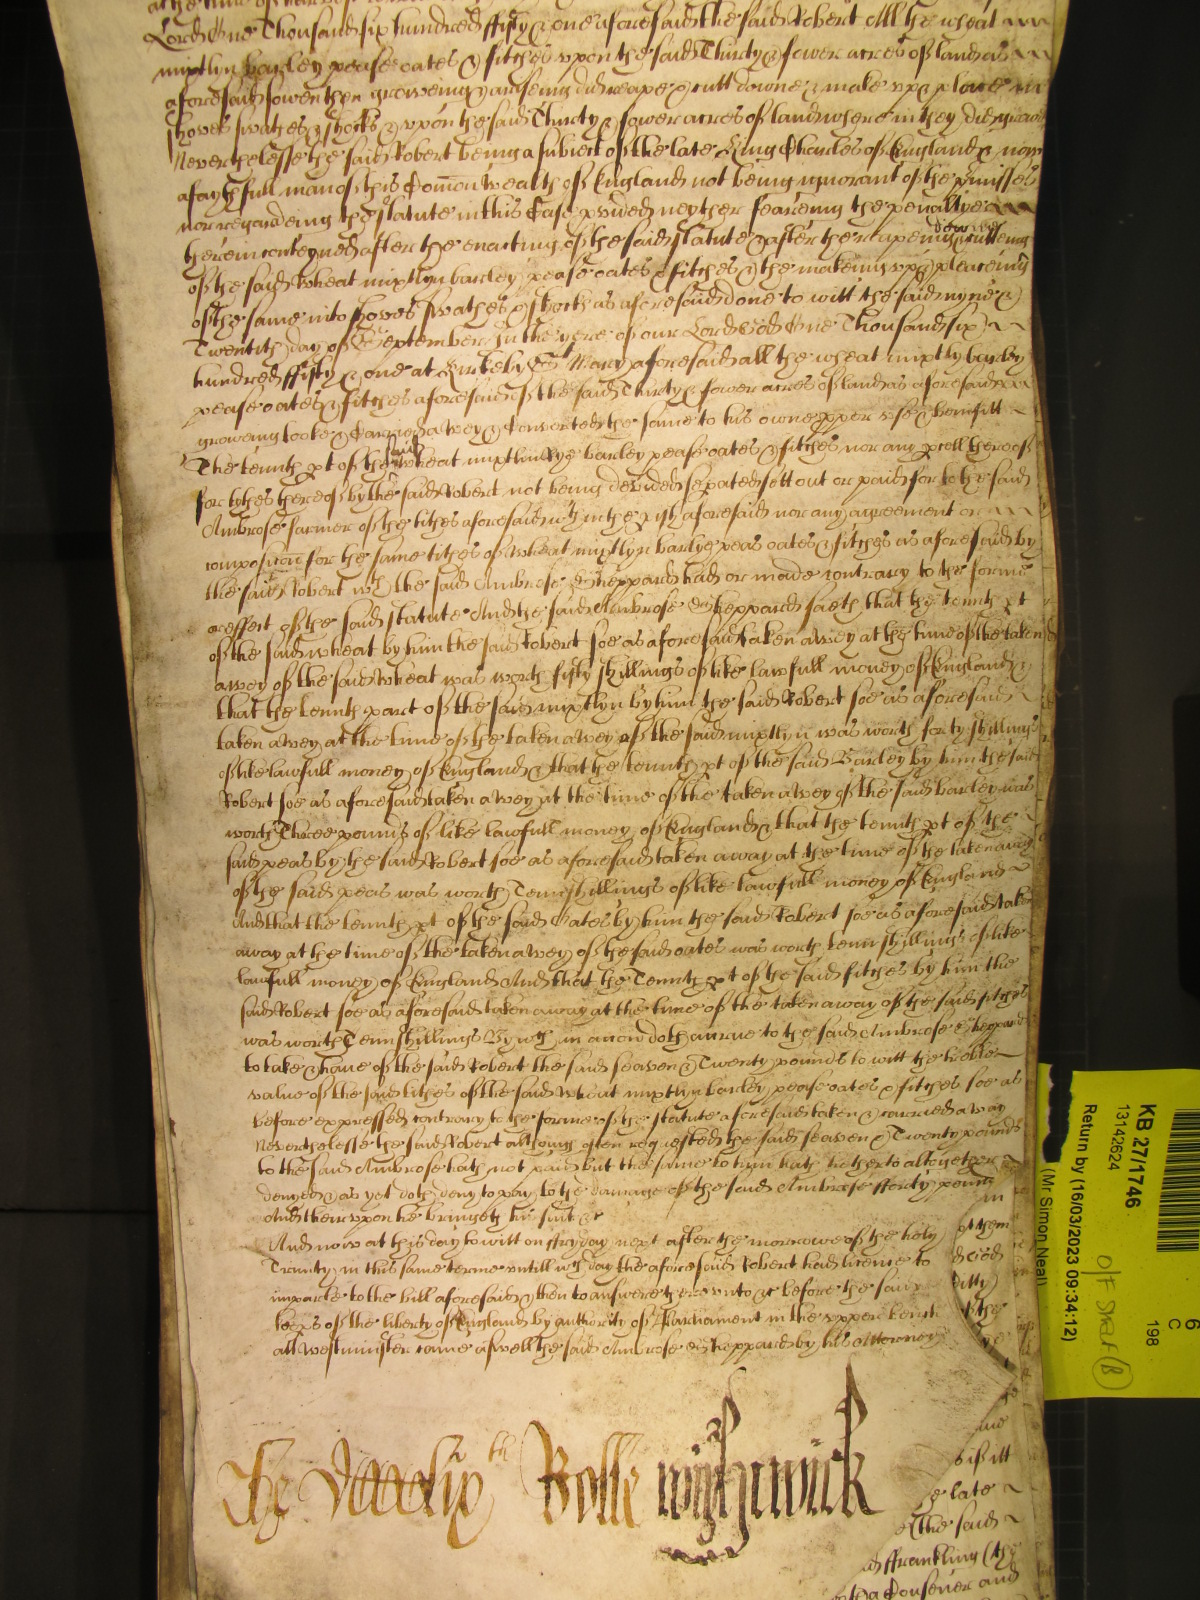 Lord One Thousand six hundred ffifty & one aforesaid the said Robert All the wheat
mixtlyn barley pease oates & fitches upon the said Thirty & fower acres of land as
aforesaid sowen then groweing & ariseing did reape & cutt downe & make upp & place in
shoves swathes & shocks & upon the said Thirty & fower acres of land wherein they did growe
Neverthelesse the said Robert being a subiect of the late King Charles of England & now
a faythfull man of this Comon wealth of England not being ignorant of the p'misses
nor regardeing the statute in this Case p'vided neyther feareing the penaltye
therein conteyned after the enacting of the said statute & after the reapeing downe cutteing
of the said wheat mixtlyn barley pease oates & fitches & the makeing upp & placeing
of the same into shoves swathes & shocks as aforesaid done to witt the said nyne &
Twentith day of September In the yere of our Lord God One Thousand six
hundred ffifty & one at Kirkeby St Mary aforesaid all the wheat mixtly barley
pease oates & fitches aforesaid of the said Thirty & fower acres of land as aforesaid
groweing tooke & Carried awey & Converted the same to his owne p'per use & benifitt
The tennth pt of the said wheat mixtlin barley pease oates & fitches nor any p'cell thereof
for tythes thereof by the said Robert not being devided sepated sett out or paid for to the said
Ambrose farmor of the tithes aforesaid wth in the p'ish aforesaid nor any agreement or
composicon for the same tithes of wheat mixtlyn barlye peas oates & fitches as aforesaid by
the said Robert wth the said Ambrose Sheppard had or made contrary to the forme
or effect of the said statute And the said Ambrose Sheppard saeth that the tennth pt
of the said wheat by him the said Robert soe as aforesaid taken awey at the time of the taken
awey of the said wheat was worth fifty shillings of like lawfull money of England &
that the tennth part of the said mixtlyn by him the said Robert soe as aforesaid
taken awey at the time of the taken awey of the said mixtlyn was worth forty shillings
of like lawfull money of England & that the tennth pt of the said Barley by him the said
Robert soe as aforesaid taken awey at the time of the taken awey of the said barley was
worth Three pounds of like lawfull money of England & that the tennth pt of the
said peas by the said Robert soe as aforesaid taken away at the time of the taken away
of the said peas was worth Tenn shillings of like lawfull money of England
And that the tennth pt of the said Oates by him the said Robert soe as aforesaid taken
away at the time of the taken awey of the said oates was worth tenn shillings of like
lawfull money of England And that the Tennth pt of the said fitches by him the
said Robert soe as aforesaid taken away at the time of the taken away of the said fitches
was worth Tenn shillings By wch an accon doth accrue to the said Ambrose Shepard
to take & have of the said Robert the said seaven & Twenty pounds to witt the treble
value of the said tithes of the said wheat mixtlyn barley pease oates & fitches soe as
before expressed contrary to the forme of the statute aforesaid taken & carried away
Neverthelesse the said Robert although often requested the said seaven & Twenty pounds
to the said Ambrose hath not paid but the same to him hath hitherto altogether
denyed & as yet doth deny to pay to the damage of the said Ambrose fforty pounds
And thereupon he bringeth his suit &c
And now at this day to witt on ffryday next after the morrowe of the holy
Trinity in this same terme untill wch day the aforesaid Robert had licence to
imparle to the bill aforesaid & then to answere thereunto &c before the said
keep's of the liberty of England by authority of Parliament in the upper bench
att Westminster came aswell the said Ambrose Sheppard by his Attorney
in
pt them
d God
the
ye
me
if itt
e late
the said
ffrankling (the
a Consener and
The
th
Rolle
Wightwick
KB 27/1746
13142624
Return by (16/03/2023 09:34:12)
(Mr Simon Neal)
O/F Shelf (B)
198
C
6